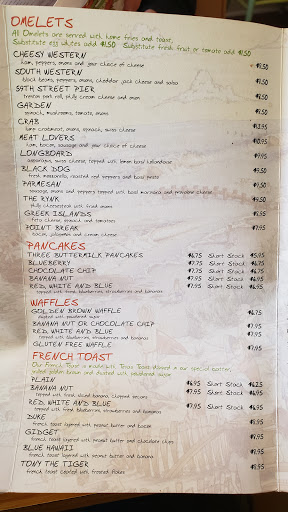 OMELETS
All Omelets are served with home fries and toast.
Substitute egg whites add $1.50 Substitute fresh fruit or tomato add $1.50
CHEESY WESTERN
ham, peppers, onions and your choice of cheese
SOUTH WESTERN
black beans, peppers, onions, cheddar jack cheese and salsa
59TH STREET PIER
GARDEN
spinach, mushrooms, tomato, onions
CRAB
MEAT LOVERS
ham, bacon, sausage and your choice of cheese
LONGBOARD
asparagus, swiss cheese, topped with lemon basil hollandaise
BLACK DOG
fresh mozzarella, roasted red peppers and basil pesto
PARMESAN
sausage, onions and peppers topped with basil marinara and provolone cheese
THE RYNK
philly cheesesteak with fried onions
GREEK ISLANDS
feta cheese, spinach and tomatoes
POINT BREAK $7.95
bacon, jalapenos and cream cheese
PANCAKES
THREE BUTTERMILK PANCAKES $6.75 Short Stack $5.95
BLUEBERRY $7.75 Short Stack $6.75
CHOCOLATE CHIP $7.75 Short Stack $6.75
BANANA NUT $7.95 Short Stack $6.95
RED, WHITE AND BLUE $7.95 Short Stack $6.95
topped with fresh blueberries, strawberries and bananas
WAFFLES
GOLDEN BROWN WAFFLE $6.75
dusted with powdered sugar
BANANA NUT OR CHOCOLATE CHIP $7.95
RED, WHITE AND BLUE $7.95
topped with blueberries, strawberries and bananas
GLUTEN FREE WAFFLE $7.95
FRENCH TOAST
Our French Toast is made with Texas Toast dipped in our special batter,
grilled golden brown and dusted with powdered sugar
PLAIN $6.95 Short Stack $6.25
BANANA NUT $7.95 Short Stack $6.95
topped with fresh sliced banana, chopped pecans
RED, WHITE AND BLUE $7.95 Short Stack $6.95
topped with fresh blueberries, strawberries and bananas
DUKE $7.95
french toast layered with peanut butter and bacon
GIDGET $7.95
french toast layered with peanut butter and chocolate chips
BLUE HAWAII $7.95
french toast layered with peanut butter and banana
TONY THE TIGER $7.95
french toast coated with frosted flakes